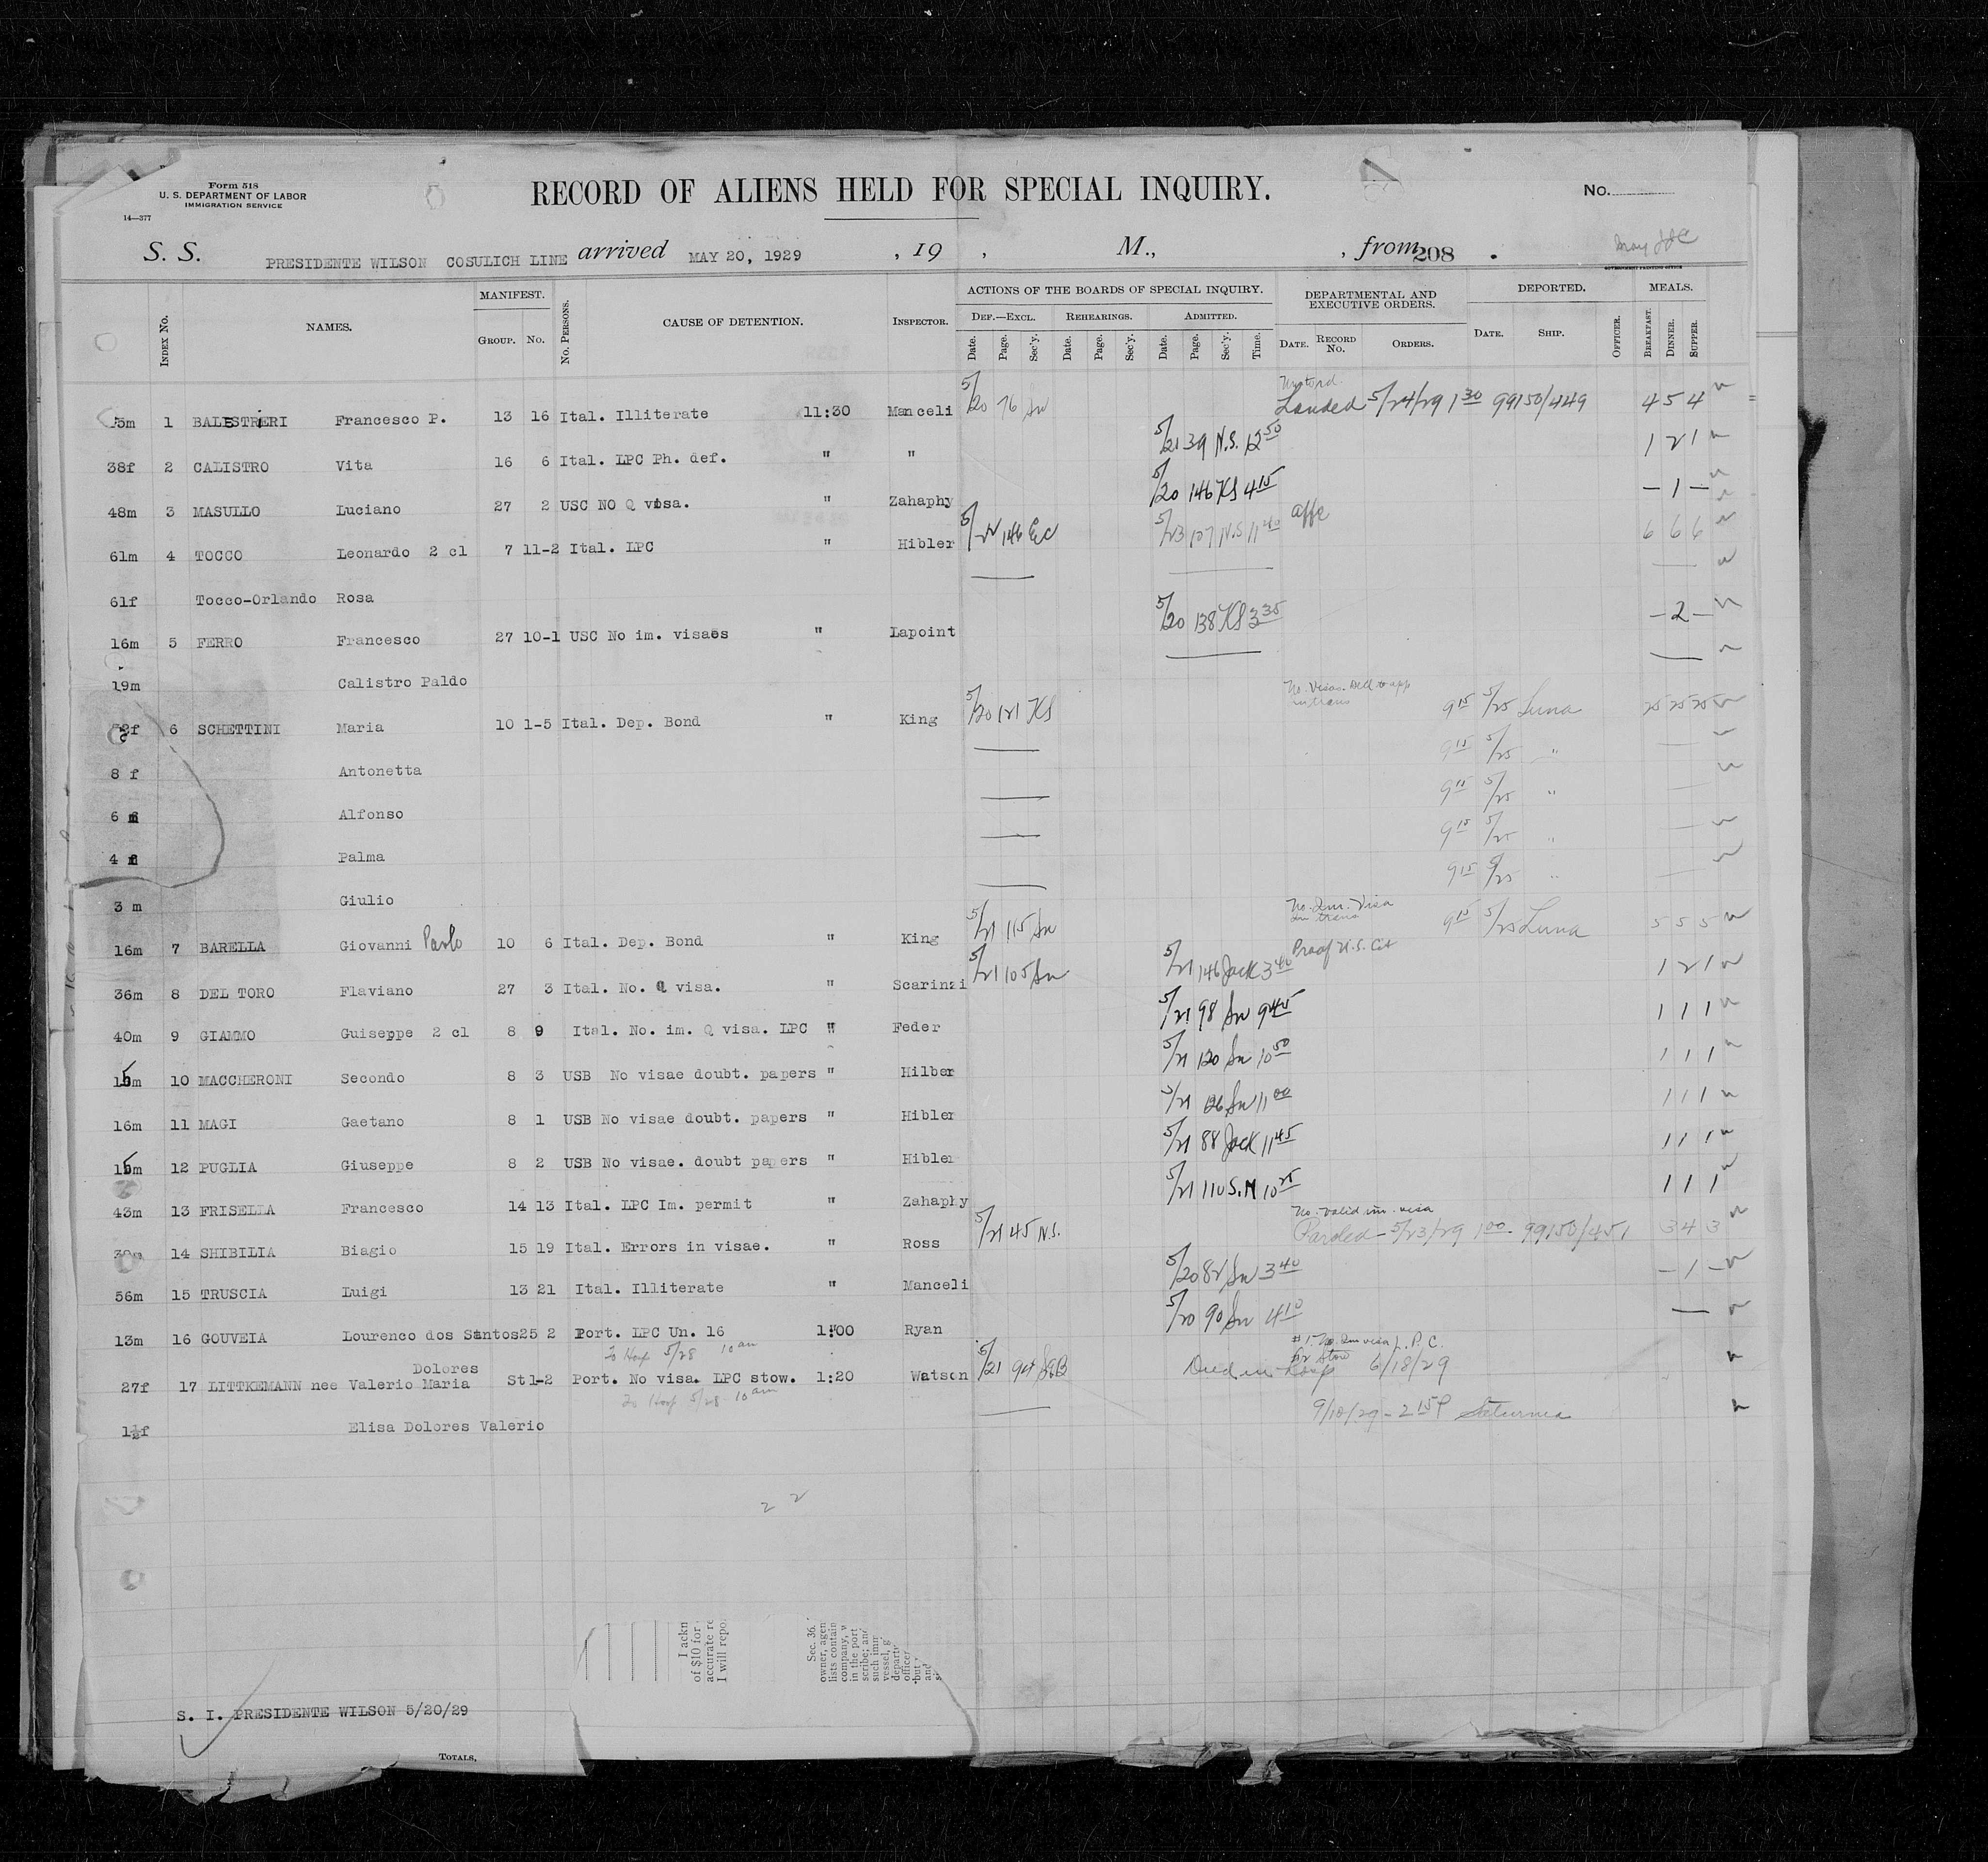 Form 518
U. S. DEPARTMENT OF LABOR
IMMIGRATION SERVICE
14—377
RECORD OF ALIENS HELD FOR SPECIAL INQUIRY.
No.
S. S. PRESIDENTE WILSON COSULICH LINE arrived MAY 20, 1929 , 19 , M., , from 208 .
GOVERNMENT PRINTING OFFICE
INDEX No. NAMES. MANIFEST. GROUP. No. No. PERSONS. CAUSE OF DETENTION. INSPECTOR. ACTIONS OF THE BOARDS OF SPECIAL INQUIRY. DEF.—EXCL. REHEARINGS. ADMITTED. DEPARTMENTAL AND EXECUTIVE ORDERS. DEPORTED. MEALS.
Date. Page. Sec'y. Date. Page. Sec'y. Date. Page. Sec'y. Time. DATE. RECORD No. ORDERS. DATE. SHIP. OFFICER. BREAKFAST. DINNER. SUPPER.
5m 1 BALISTRERI Francesco P. 13 16 Ital. Illiterate 11:30 Manceli 5/20 76 Sn Landed 5/24/29 1 30 99150/449 4 5 4
38f 2 CALISTRO Vita 16 6 Ital. LPC Ph. def. " " 5/21 39 N.S. 12 50 1 2 1
48m 3 MASULLO Luciano 27 2 USC NO Q visa. " Zahaphy 5/20 146 KS 4 15 — 1 —
61m 4 TOCCO Leonardo 2 cl 7 11-2 Ital. LPC " Hibler 5/22 146 EC 5/23 107 N.S 11 40 affe 6 6 6
61f Tocco-Orlando Rosa
16m 5 FERRO Francesco 27 10-1 USC No im. visaes " Lapoint 5/20 138 KS 3 35 — 2 —
19m Calistro Paldo
No. Visas. Decl to app
in trans
f 6 SCHETTINI Maria 10 1-5 Ital. Dep. Bond " King 5/20 121 KS 9 15 5/25 Luna 25 25 25
8 f Antonetta 9 15 5/25 "
6 m Alfonso 9 15 5/25 "
4 f Palma 9 15 5/25 "
3 m Giulio 9 15 5/25 "
No. Im. Visa
in trans
16m 7 BARELLA Giovanni Paolo 10 6 Ital. Dep. Bond " King 5/21 115 Sn 9 15 5/25 Luna 5 5 5
36m 8 DEL TORO Flaviano 27 3 Ital. No. Q visa. " Scarinzi 5/21 105 Sn 5/21 146 Jack 3 40 Proof U.S. Cit 1 2 1
40m 9 GIAMMO Guiseppe 2 cl 8 9 Ital. No. im. Q visa. LPC " Feder 5/21 98 Sn 9 45 1 1 1
15m 10 MACCHERONI Secondo 8 3 USB No visae doubt. papers " Hilber 5/21 120 Sn 10 50 1 1 1
16m 11 MAGI Gaetano 8 1 USB No visae doubt. papers " Hibler 5/21 126 Sn 11 00 1 1 1
15m 12 PUGLIA Giuseppe 8 2 USB No visae. doubt papers " Hibler 5/21 88 Jack 11 45 1 1 1
43m 13 FRISELLA Francesco 14 13 Ital. LPC Im. permit " Zahaphy 5/21 110 S.N 10 25 1 1 1
No. valid im. visa
14 SHIBILIA Biagio 15 19 Ital. Errors in visae. " Ross 5/21 45 N.S. Paroled — 5/23/29 1 00 99150/451 3 4 3
56m 15 TRUSCIA Luigi 13 21 Ital. Illiterate " Manceli 5/20 82 Sn 3 40 — 1 —
13m 16 GOUVEIA Lourenco dos Santos 25 2 Port. LPC Un. 16 1:00 Ryan 5/20 90 Sn 4 10 —
To Hosp 5/28 10 am
#1. No. Im visa L. P. C.
Dolores
27f 17 LITTKEMANN nee Valerio Maria St 1-2 Port. No visa. LPC stow. 1:20 Watson 5/21 94 Died in Hosp 6/18/29
To Hosp 5/28 10 am
1½f Elisa Dolores Valerio 9/10/29 — 2 15 P Saturnia
2 2
I ackn
of $10 for
accurate re
I will repo
Sec. 36.
owner, agen
lists contain
company, v
in the port
scribe; and
such imm
vessel, g
depart
officer
but
and
S. I. PRESIDENTE WILSON 5/20/29
TOTALS,